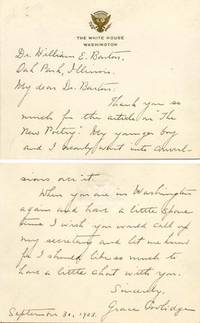 THE WHITE HOUSE
WASHINGTON
Dr. William E. Barton,
Oak Park, Illinois.
My dear Dr. Barton:
Thank you so
much for the article on "The
New Poetry". My younger boy
and I nearly went into convul-
sions over it.
When you are in Washington
again and have a little spare
time I wish you would call up
my secretary and let me know
for I should like so much to
have a little chat with you.
Sincerely,
Grace Coolidge
September 30,